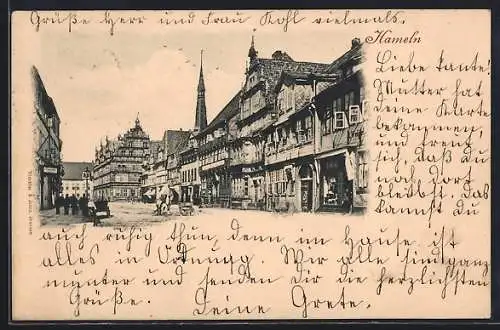 Grüße Herr und Frau Kohl vielmals.
Hameln
Liebe Tante!
Mutter hat
deine Karte
bekommen,
und freut
sich, daß du
noch dort
bleibst. Das
kannst du
auch ruhig thun, denn im Hause ist
alles in Ordnung. Wir alle sind ganz
munter und senden dir die herzlichsten
Grüße. Deine Grete.